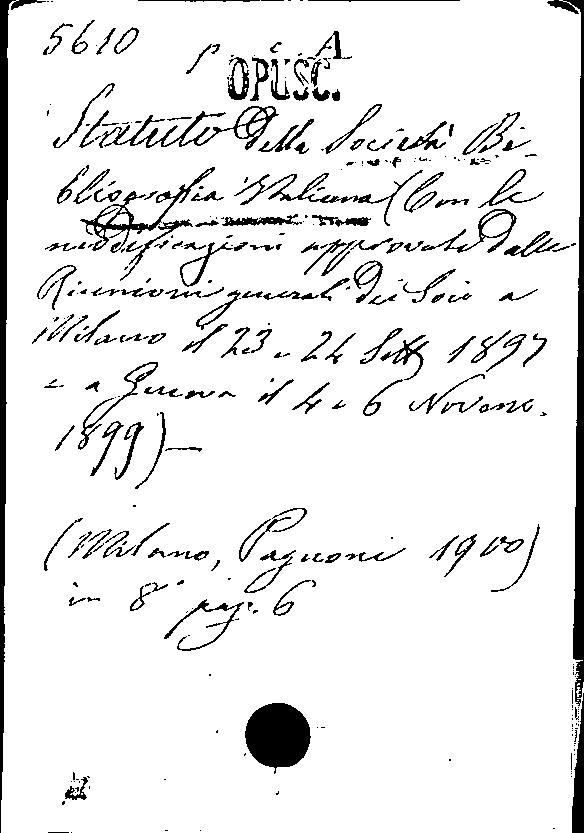 5610
P c A
OPUSC.
Statuto della Società Bi-
bliografica Italiana (Con le
modificazioni approvate dalle
Riunioni generali dei Soci a
Milano il 23 e 24 Sett 1897
e a Genova il 4 e 6 Novem.
1899)—
(Milano, Pagnoni 1900)
in 8° pag. 6